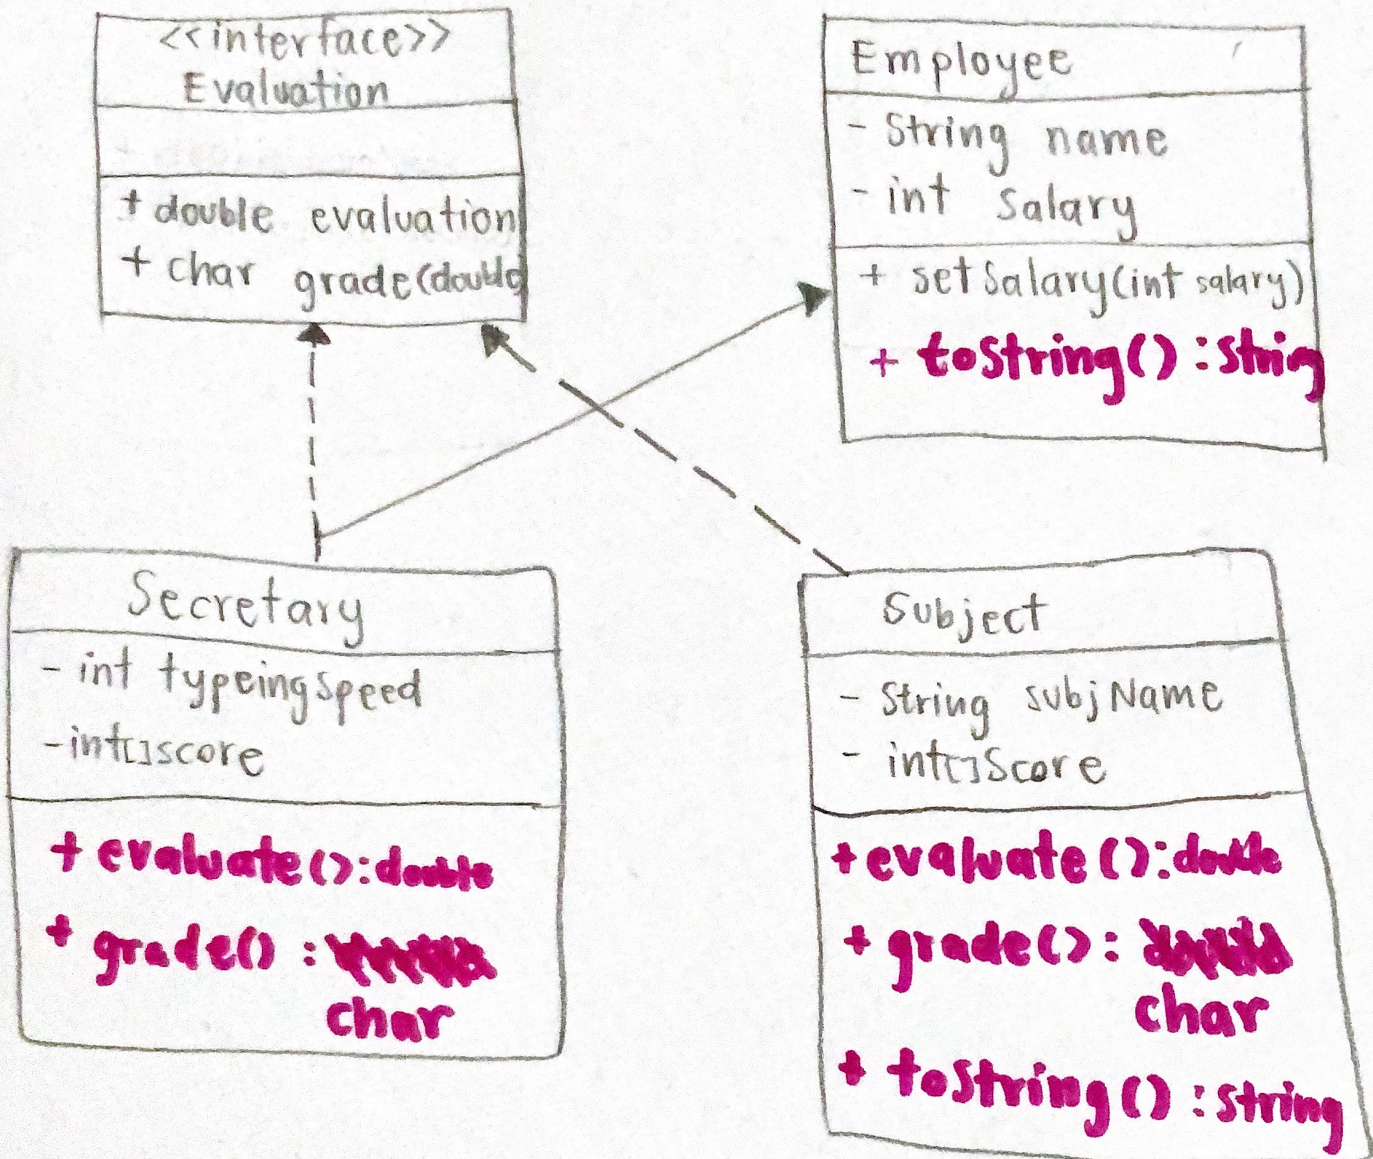 <<interface>>
Evaluation
+ double evaluation
+ char grade(double
Employee
- String name
- int salary
+ setSalary(int salary)
+ toString() : string
Secretary
- int typeingSpeed
- int[] score
+ evaluate() : double
+ grade() :
char
Subject
- String subjName
- int[] Score
+ evaluate() : double
+ grade() :
char
+ toString() : string